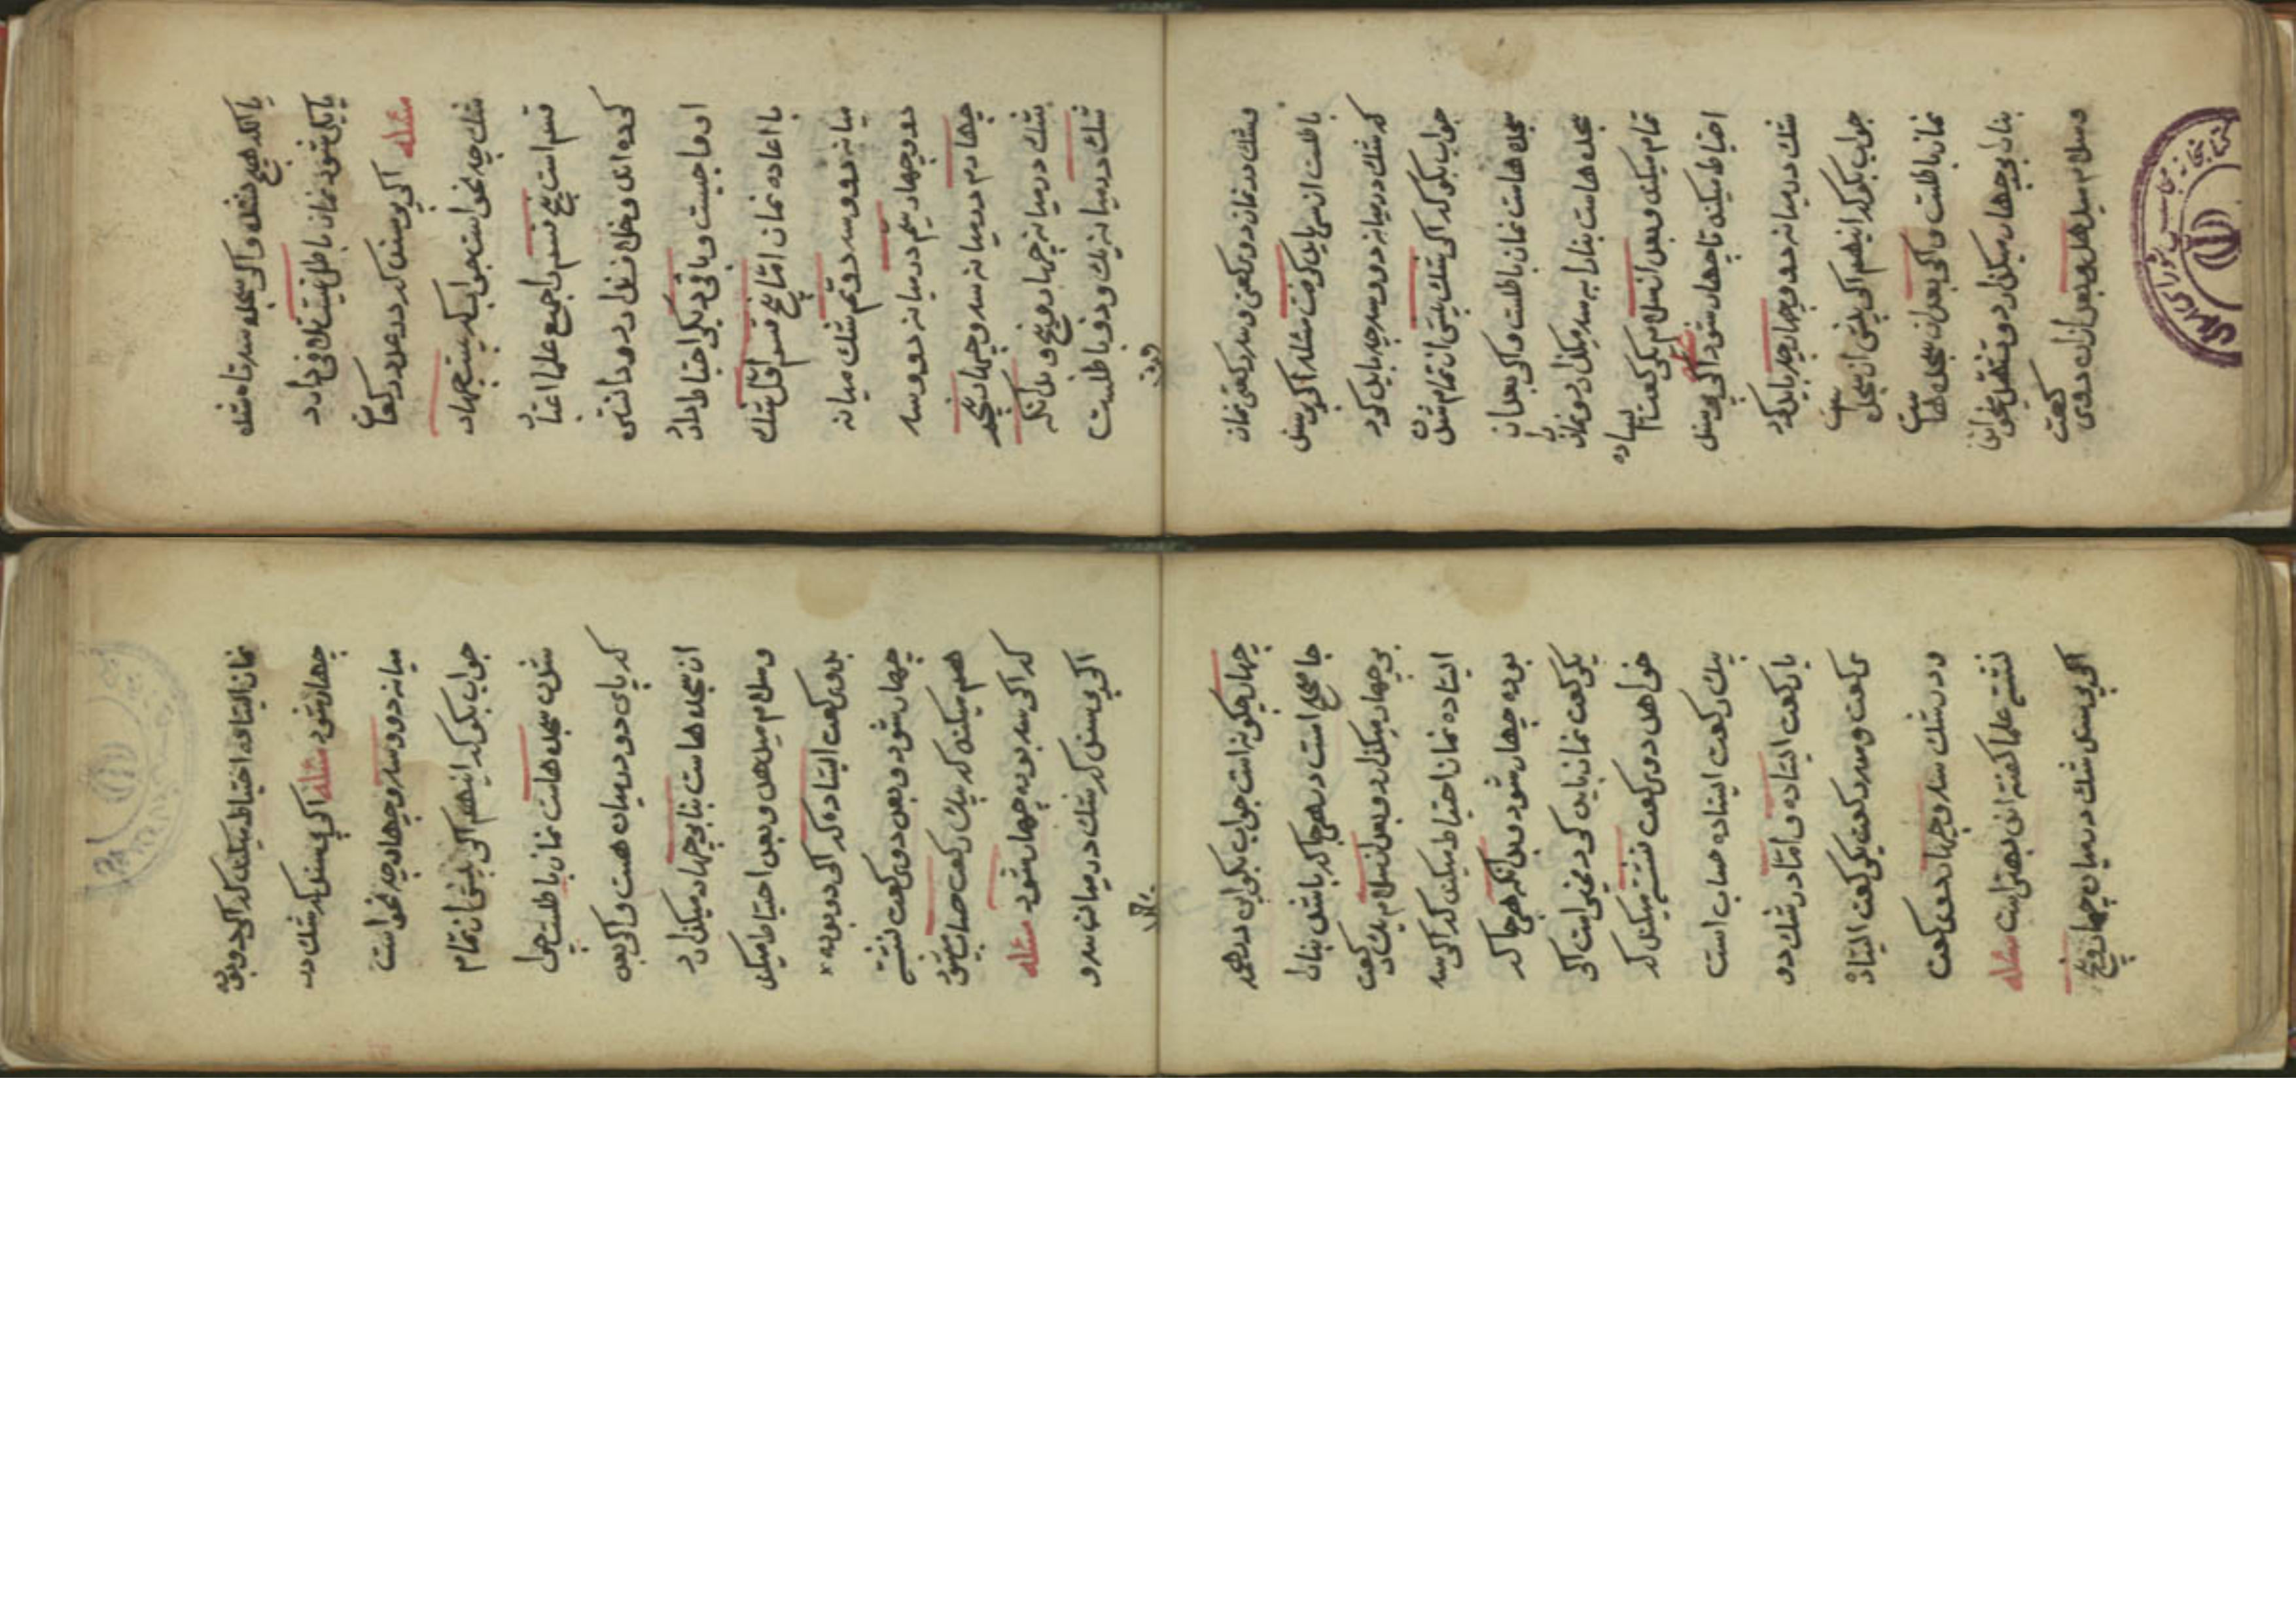 یا آنکه هیچ نشده و اگر سجده سه تا شده
یا یکی شود نماز باطل نیست تلافی دارد
مسئله اگر پرسند که در عدد رکعات
شک چه نحو است جواب که بیست چهار
قسم است پنج قسم را جمیع علما اعتبار
کرده اند و خلاف در دانستن
او واجبست و باقی دیگر احتیاط دارد
با اعاده نماز اما پنج قسم اول شک
میانه دو و سه دویم شک میانه
دو و چهار سیم در میانه دو و سه
چهارم در میانه سه و چهار پنجم
شک در میانه چهار و پنج و بدانکه
شک در میانه یک و دو باطلست
و شک در نماز دو رکعتی و سه رکعتی نماز
باطلست از سر باید گرفت مسئله اگر پرسند
که شک در میانه دو و سه چه باید کرد
جواب بگو که اگر شک پیش از تمام شدن
سجده هاست نماز باطلست و اگر بعد از
سجده هاست بنا را به سه میگذارد و نماز را
تمام میکند و بعد از سلام یک رکعت ایستاده
احتیاط میکند تا چهار شود مسئله اگر پرسند
شک در میانه دو و چهار چه باید کرد
جواب بگو که اینهم اگر پیش از سجده است
نماز باطلست و اگر بعد از سجده هاست
بنا بر چهار میگذارد و تشهد میخواند
و سلام میدهد و بعد از آن دو رکعت
نماز ایستاده احتیاط میکند که اگر دو بوده
چهار شود مسئله اگر پرسند که شک در
میانه دو و سه و چهار چه نحو است
جواب بگو که اینهم اگر پیش از تمام
شدن سجده هاست نماز باطلست چرا
که پای دو در میان هست و اگر بعد
از سجده هاست بنا بر چهار میگذارد
و سلام میدهد و بعد احتیاط میکند
بدو رکعت ایستاده که اگر دو بوده
چهار شود و بعد دو رکعت نشسته
هم میکند که بیک رکعت حساب میشود
که اگر سه بوده چهار شود مسئله
اگر پرسند که شک در میانه سه و
چهار چگونه است جواب بگو این در همه
جا صحیح است در هر جا که باشد بنا را
بر چهار میگذارد و بعد از سلام یک رکعت
ایستاده نماز احتیاط میکند که اگر سه
بوده چهار شود و بدانکه هر جا که
یک رکعت نماز باید کرد مخیر است اگر
خواهد دو رکعت نشسته میکند که
بیک رکعت ایستاده حساب است
یا رکعت ایستاده و اما در شک دو
رکعت و سه رکعت یک رکعت ایستاده
و در شک سه و چهار دو رکعت
نشسته علما گفته اند بهتر است مسئله
اگر پرسند شک در میان چهار و پنج